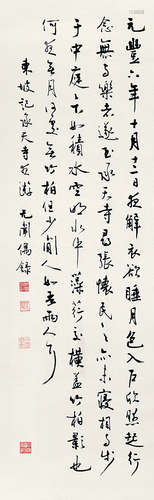 元豐六年十月十二日夜解衣欲睡月色入户欣然起行
念無与樂者遂至承天寺尋張懷民亦未寢相与步
于中庭庭下如積水空明水中藻荇交横蓋竹柏影也
何夜無月何處無竹柏但少閒人如吾兩人耳
東坡記承天寺夜游 允閒偶錄